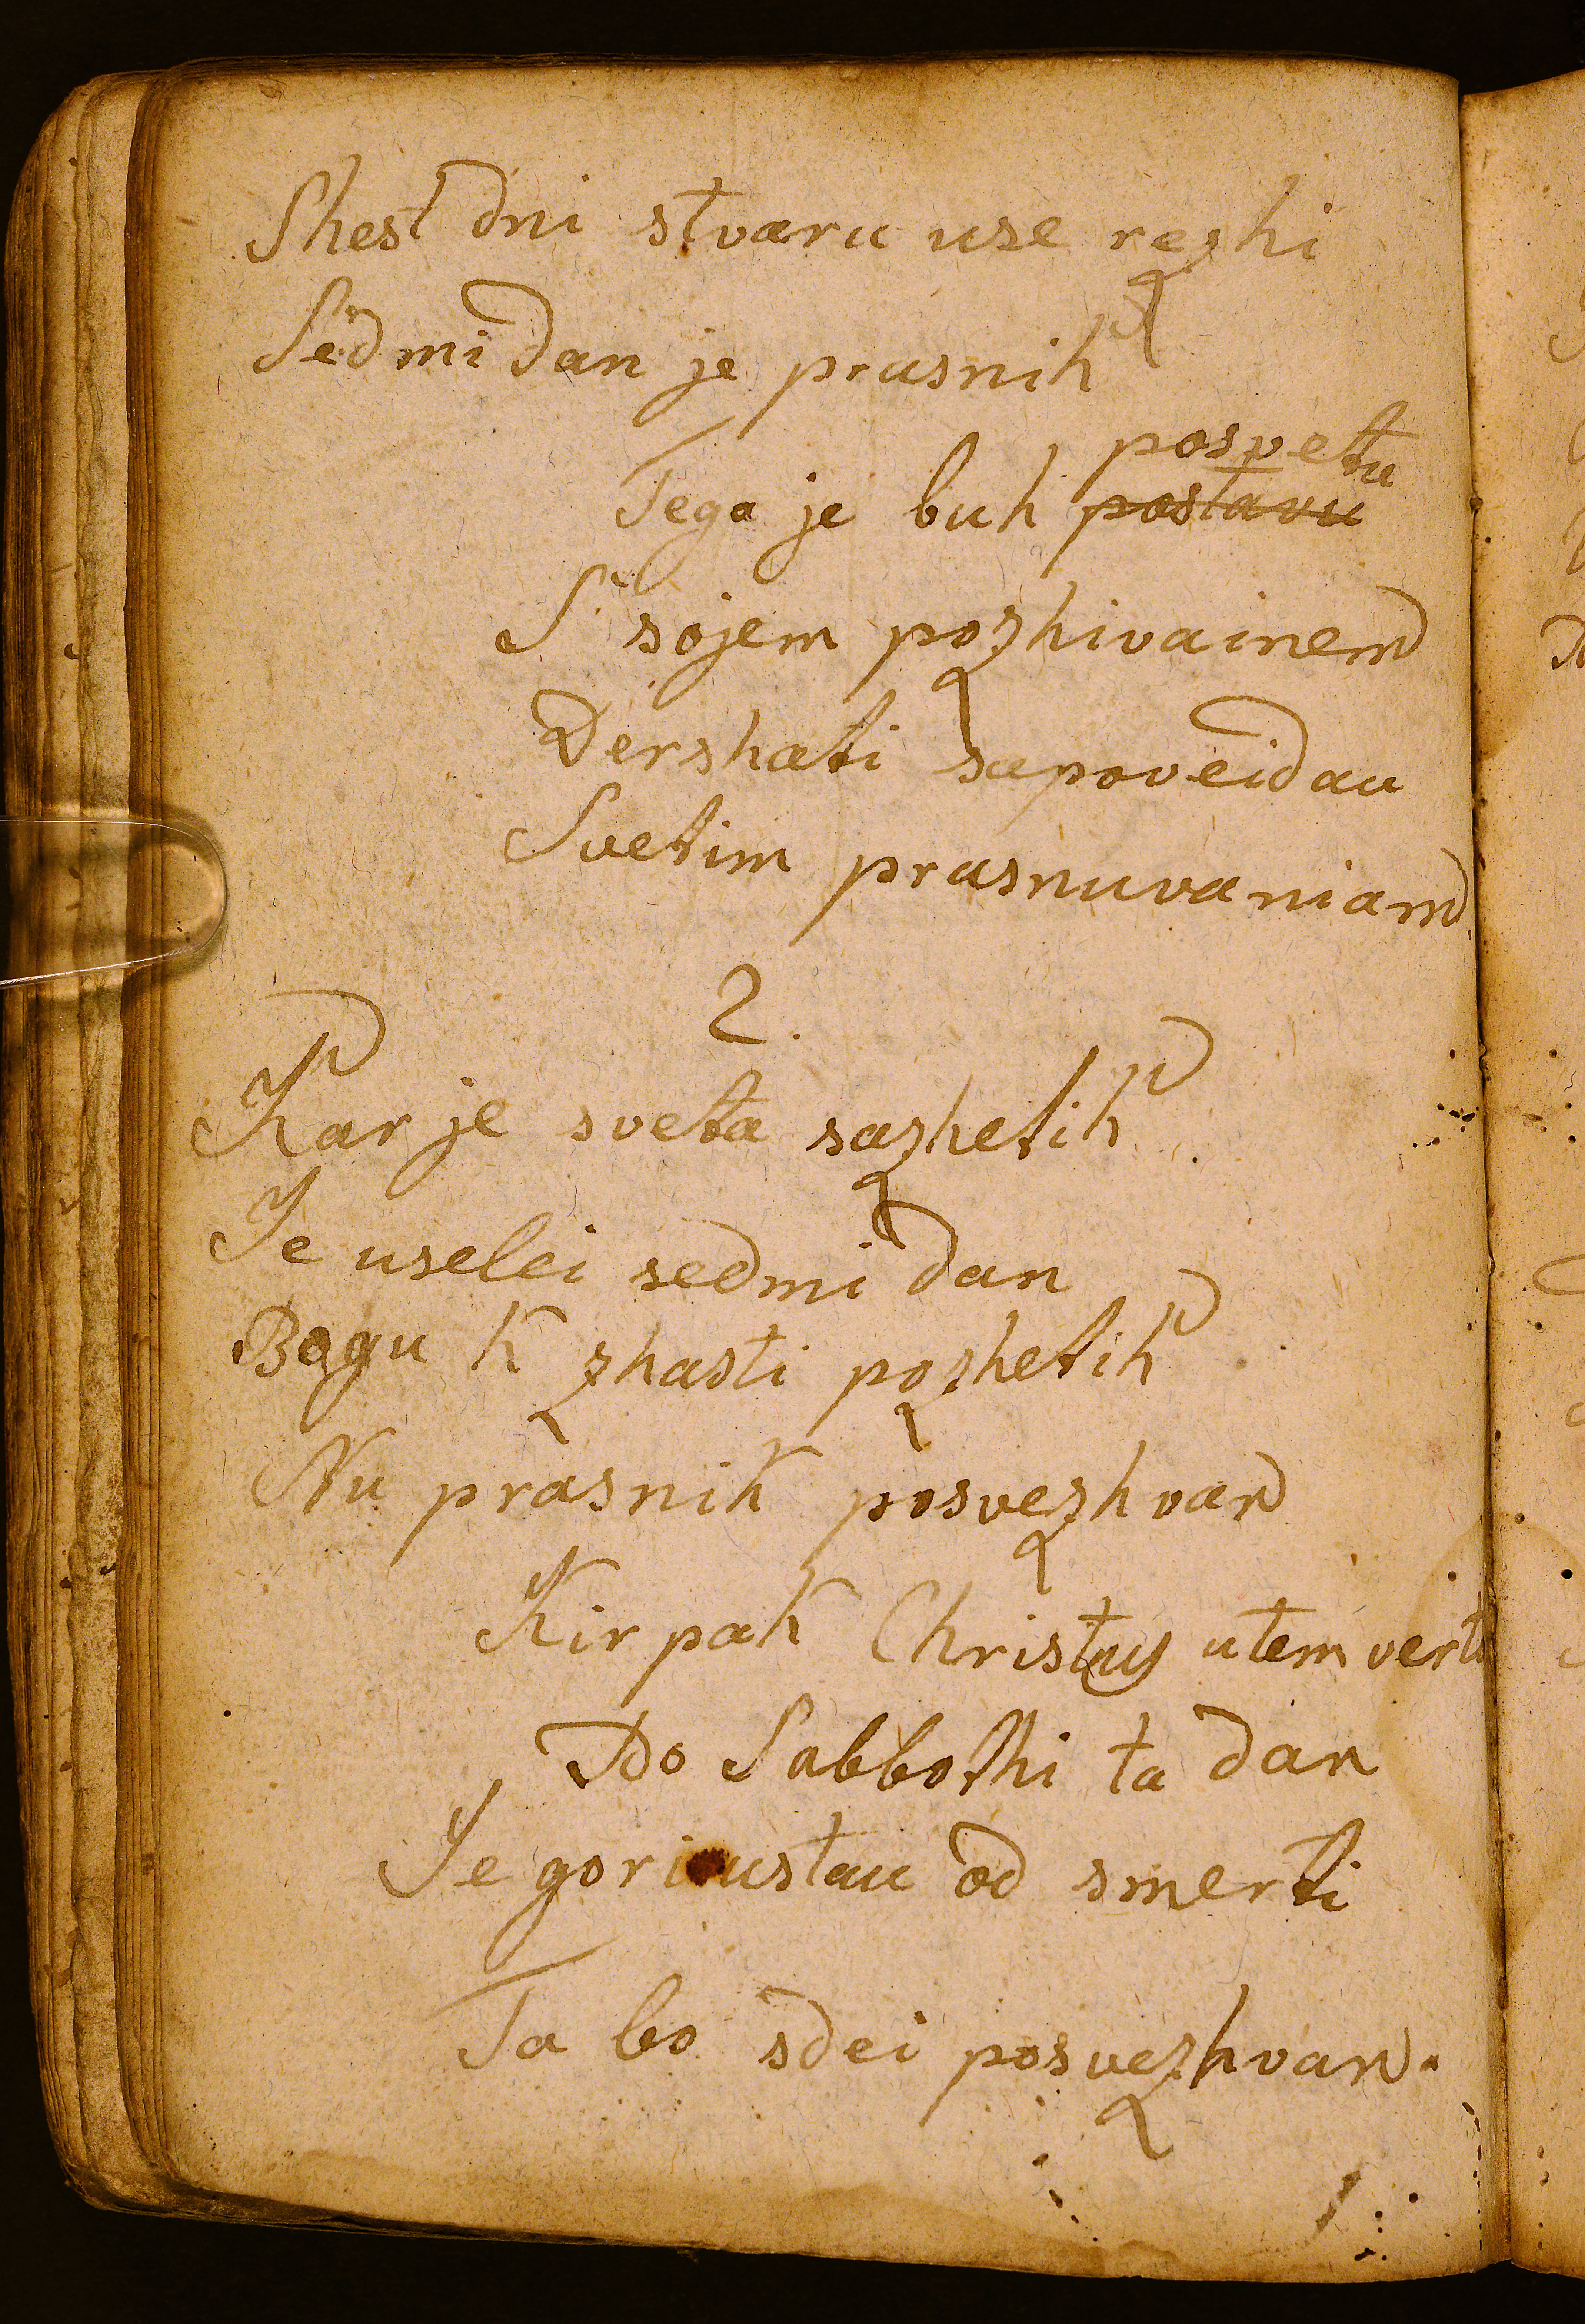 Shest dni stvaru use rezhi
Sedmi dan je prasnik
posvetu
Tega je buh postavu
S' sojem pozhivainem
Dershati sapoveidau
Svetim prasnuvaniam
2.
Kar je sveta sazhetik
Je uselei sedmi dan
Bogu k zhasti pozhetik
Nu prasnik posvezhvan
Kir pak Christus utem verti
Do Sabbothi ta dan
Je gori ustau od smerti
Ta bo sdei posvezhvan.